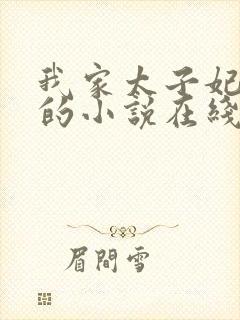 我家太子妃
的小說在綫
眉間雪